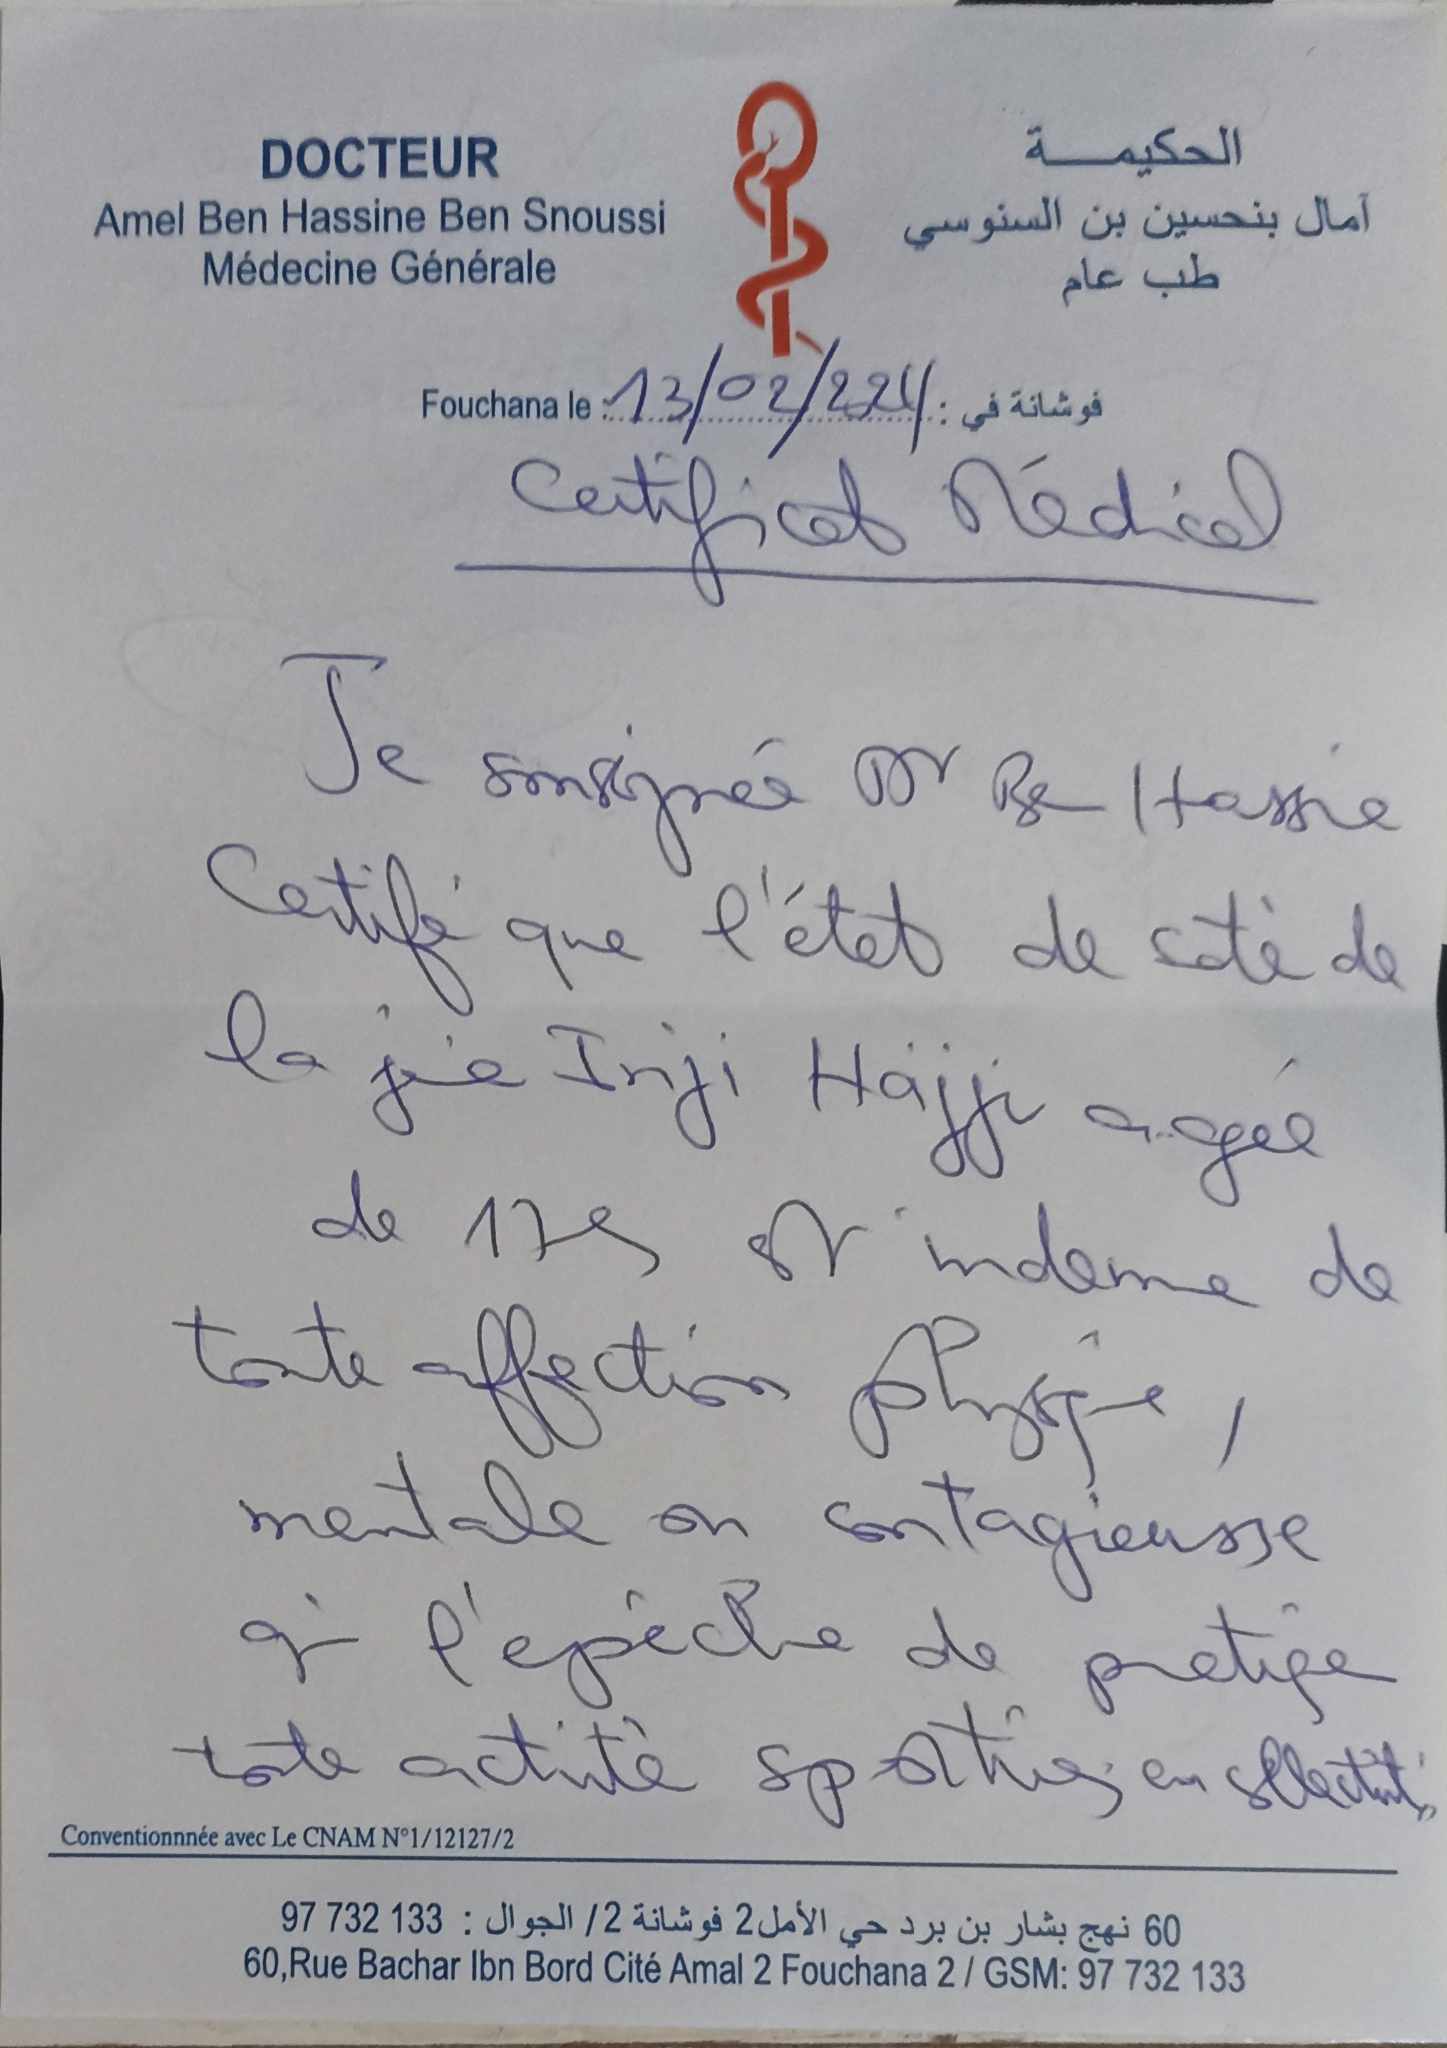 DOCTEUR
Amel Ben Hassine Ben Snoussi
Médecine Générale
الحكيمـــــة
آمال بنحسين بن السنوسي
طب عام
Fouchana le : 13/02/2024 فوشانة في :
Certificat Médical
Je soussignée Dr Ben Hassine
Certifie que l'état de santé de
la jeune Inji Hajji agée
de 17 est indemne de
toute affection physique,
mentale ou contagieusse
qui l'empêche de pratiquer
toute activité sportive en collectivité
Conventionnnée avec Le CNAM N°1/12127/2
60 نهج بشار بن برد حي الأمل2 فوشانة 2/ الجوال : 133 732 97
60,Rue Bachar Ibn Bord Cité Amal 2 Fouchana 2 / GSM: 97 732 133